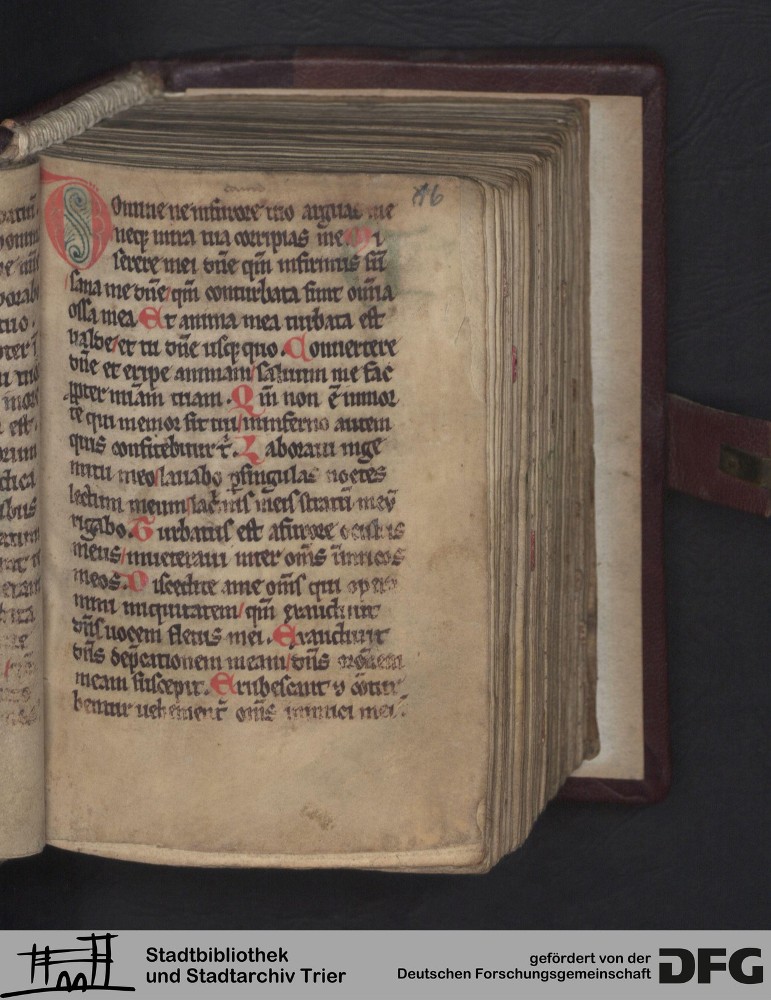 16
Domine ne infurore tuo arguas me
neqꝫ inira tua corripias me Mi
serere mei dn̄e qm̄ infirmus sū
sana me dn̄e qm̄ conturbata sunt om̄a
ossa mea Et anima mea turbata est
valde et tu dn̄e usqꝫ quo . Conuertere
dn̄e et eripe animam saluum me fac
ꝓpter mīam tuam . Qm̄ non ē inmor
te qui memor sit tui ininferno autem
quis confitebitur t̄ . Laboraui inge
mitu meo lauabo ꝑsingulas noctes
lectum meum lac̄mis meis stratū meū
rigabo . Turbatus est afurore oculus
meus inueteraui inter om̄s inimicos
meos . Discedite ame om̄s qui opera
mini iniquitatem qm̄ exaudiuit
dn̄s uocem fletus mei . Exaudiuit
dn̄s dep̄cationem meam dn̄s
meam suscepit . Erubescant ⁊ cōtur
bentur uehement̄ om̄s inimici mei .
Stadtbibliothek
und Stadtarchiv Trier
gefördert von der
Deutschen Forschungsgemeinschaft
DFG